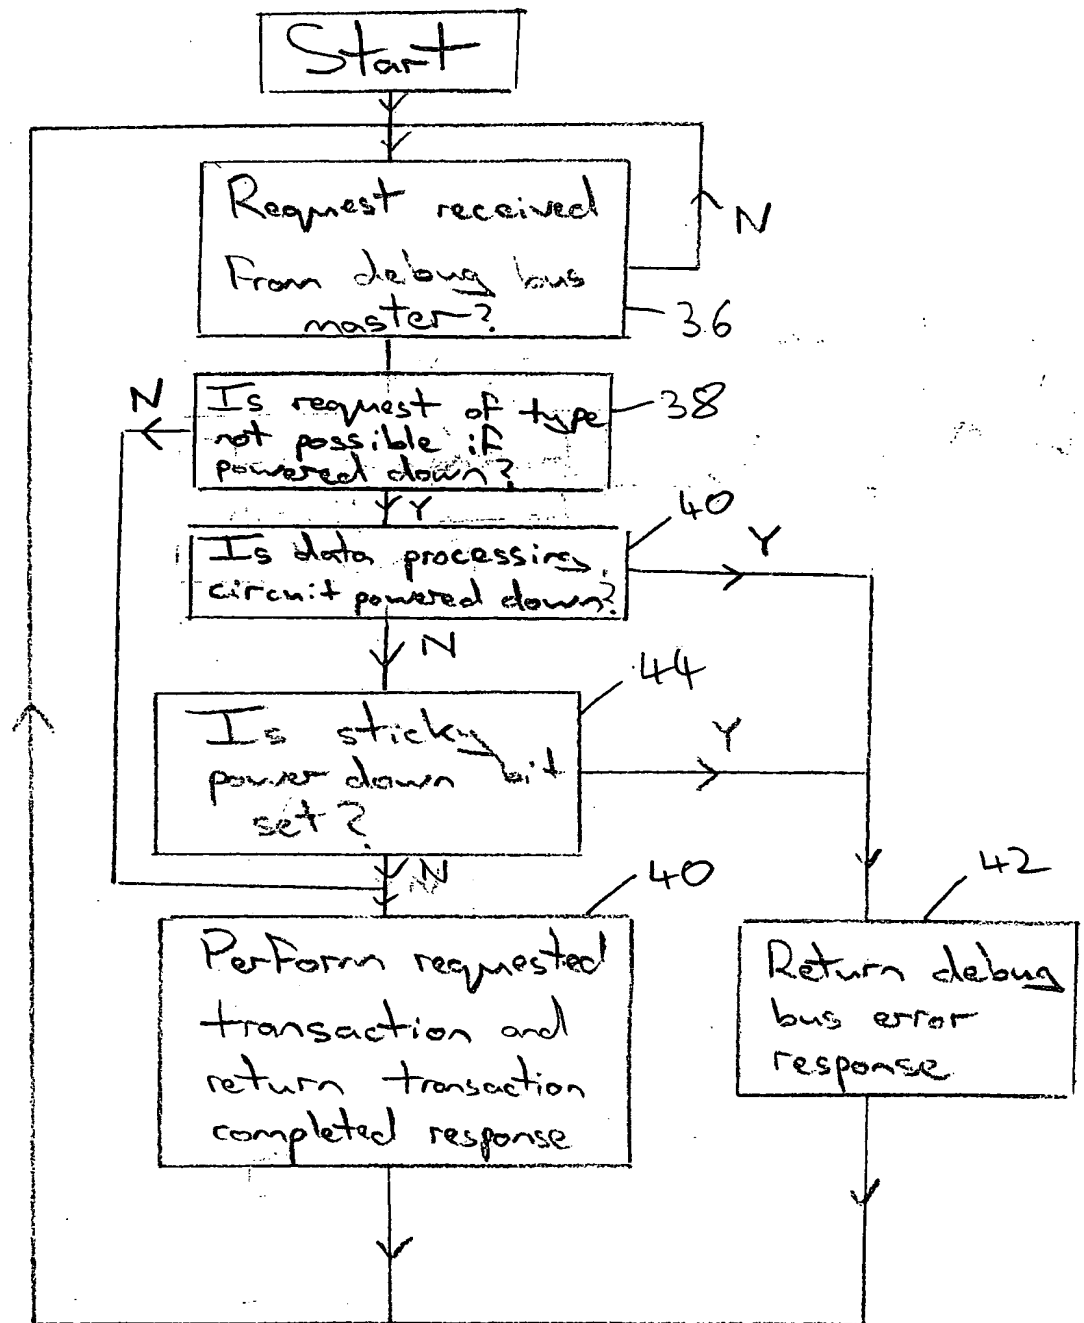 Start
Request received
From debug bus
master?
N
36
N
Is request of type
not possible if
powered down?
38
Y
40
Is data processing
circuit powered down?
Y
N
44
Is sticky
power down bit
set?
Y
N
40
Perform requested
transaction and
return transaction
completed response
42
Return debug
bus error
response